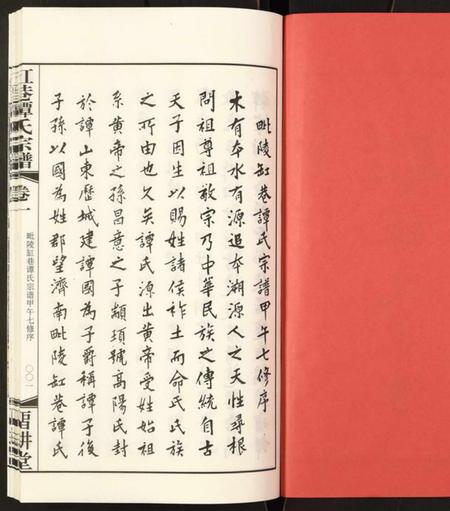 毗陵缸巷譚氏宗譜甲午七修序
木有本水有源追本溯源人之天性尋根
問祖尊祖敬宗乃中華民族之傳統自古
天子因生以賜姓諸侯祚土而命氏氏族
之所由也久矣譚氏源出黄帝受姓始祖
系黄帝之孫昌意之子顓頊號高陽氏封
於譚山東歷城建譚國為子爵稱譚子後
子孫以國為姓郡望濟南毗陵缸巷譚氏
缸巷譚氏宗譜
卷一
毗陵缸巷譚氏宗谱甲午七修序
〇〇一